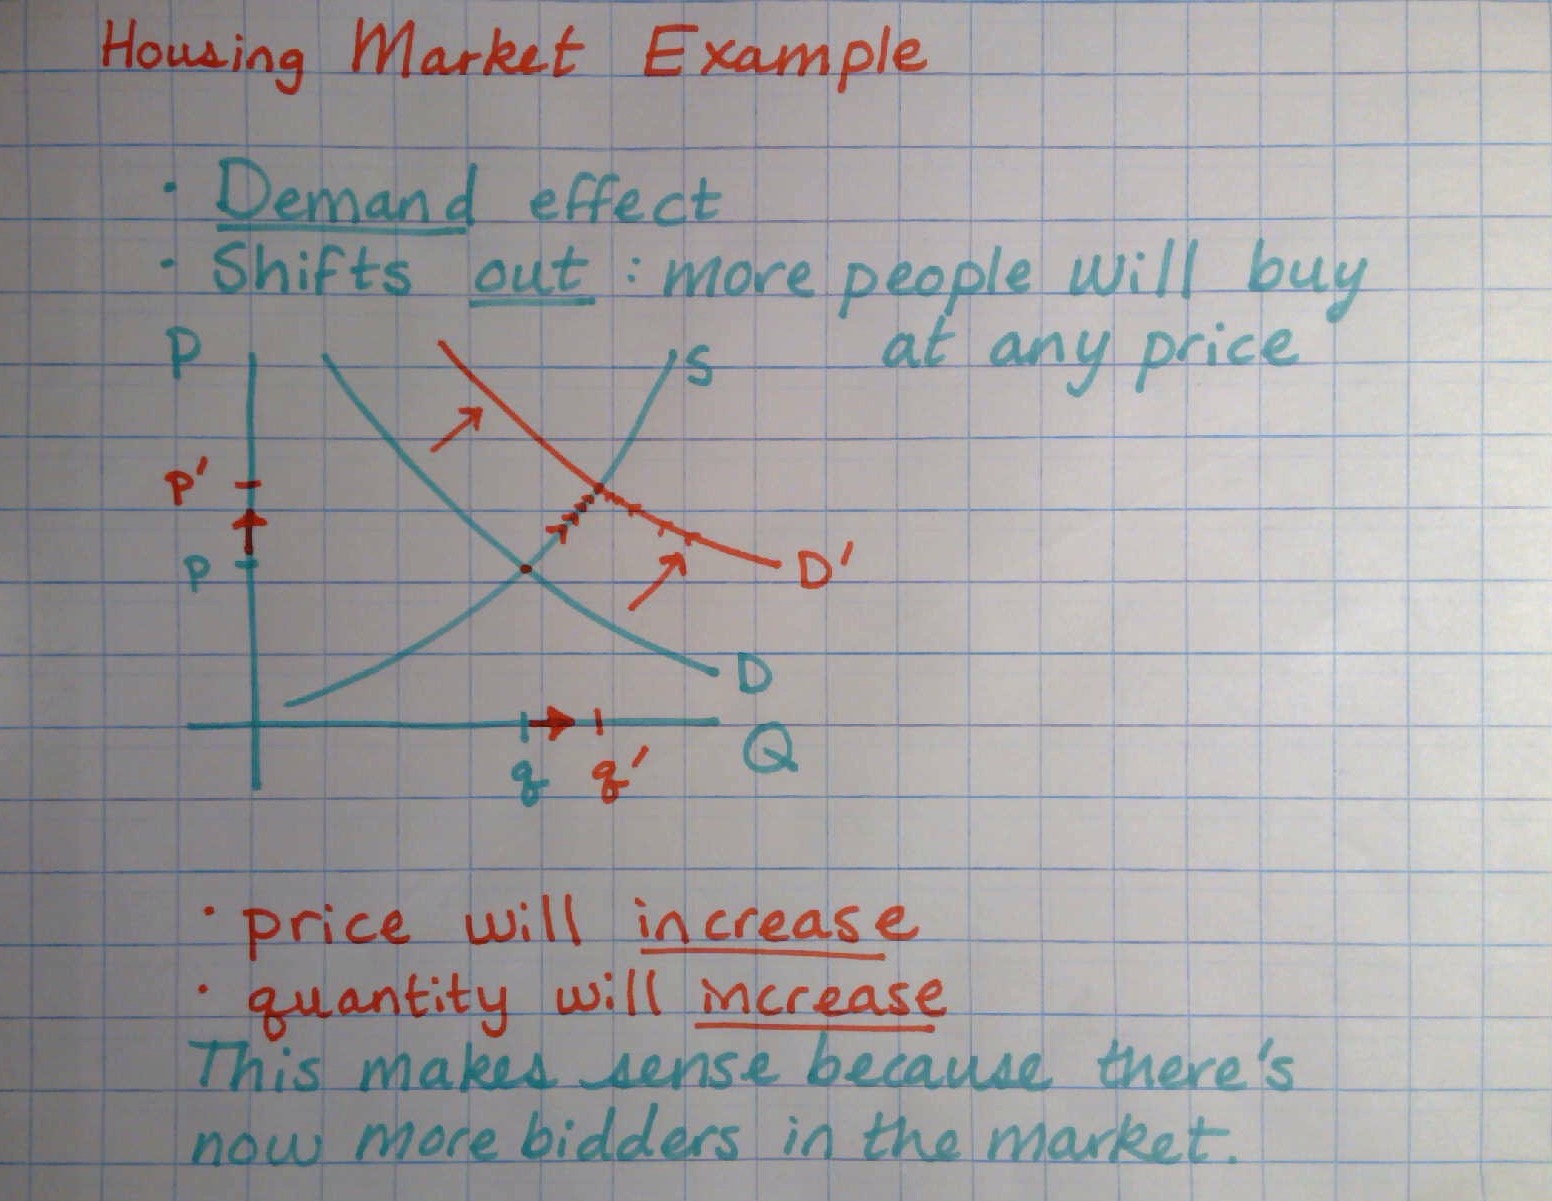 Housing Market Example
· Demand effect
· Shifts out : more people will buy
at any price
P
S
p'
p
D'
D
q
q'
Q
· price will increase
· quantity will increase
This makes sense because there's
now more bidders in the market.